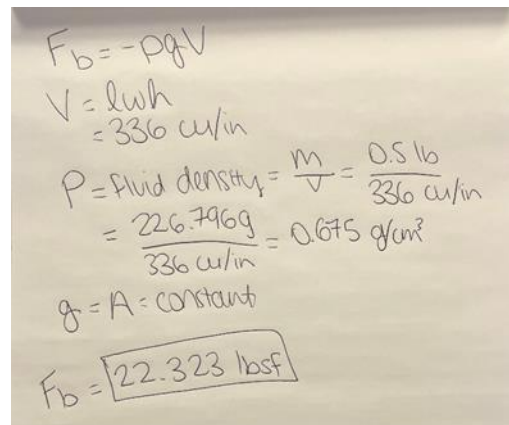 Fb = -pgV
V = lwh
= 336 cu/in
P = fluid density = m/V = 0.5 lb/336 cu/in
= 226.796g/336 cu/in = 0.675 g/cm³
g = A = constant
Fb = 22.323 lbsf